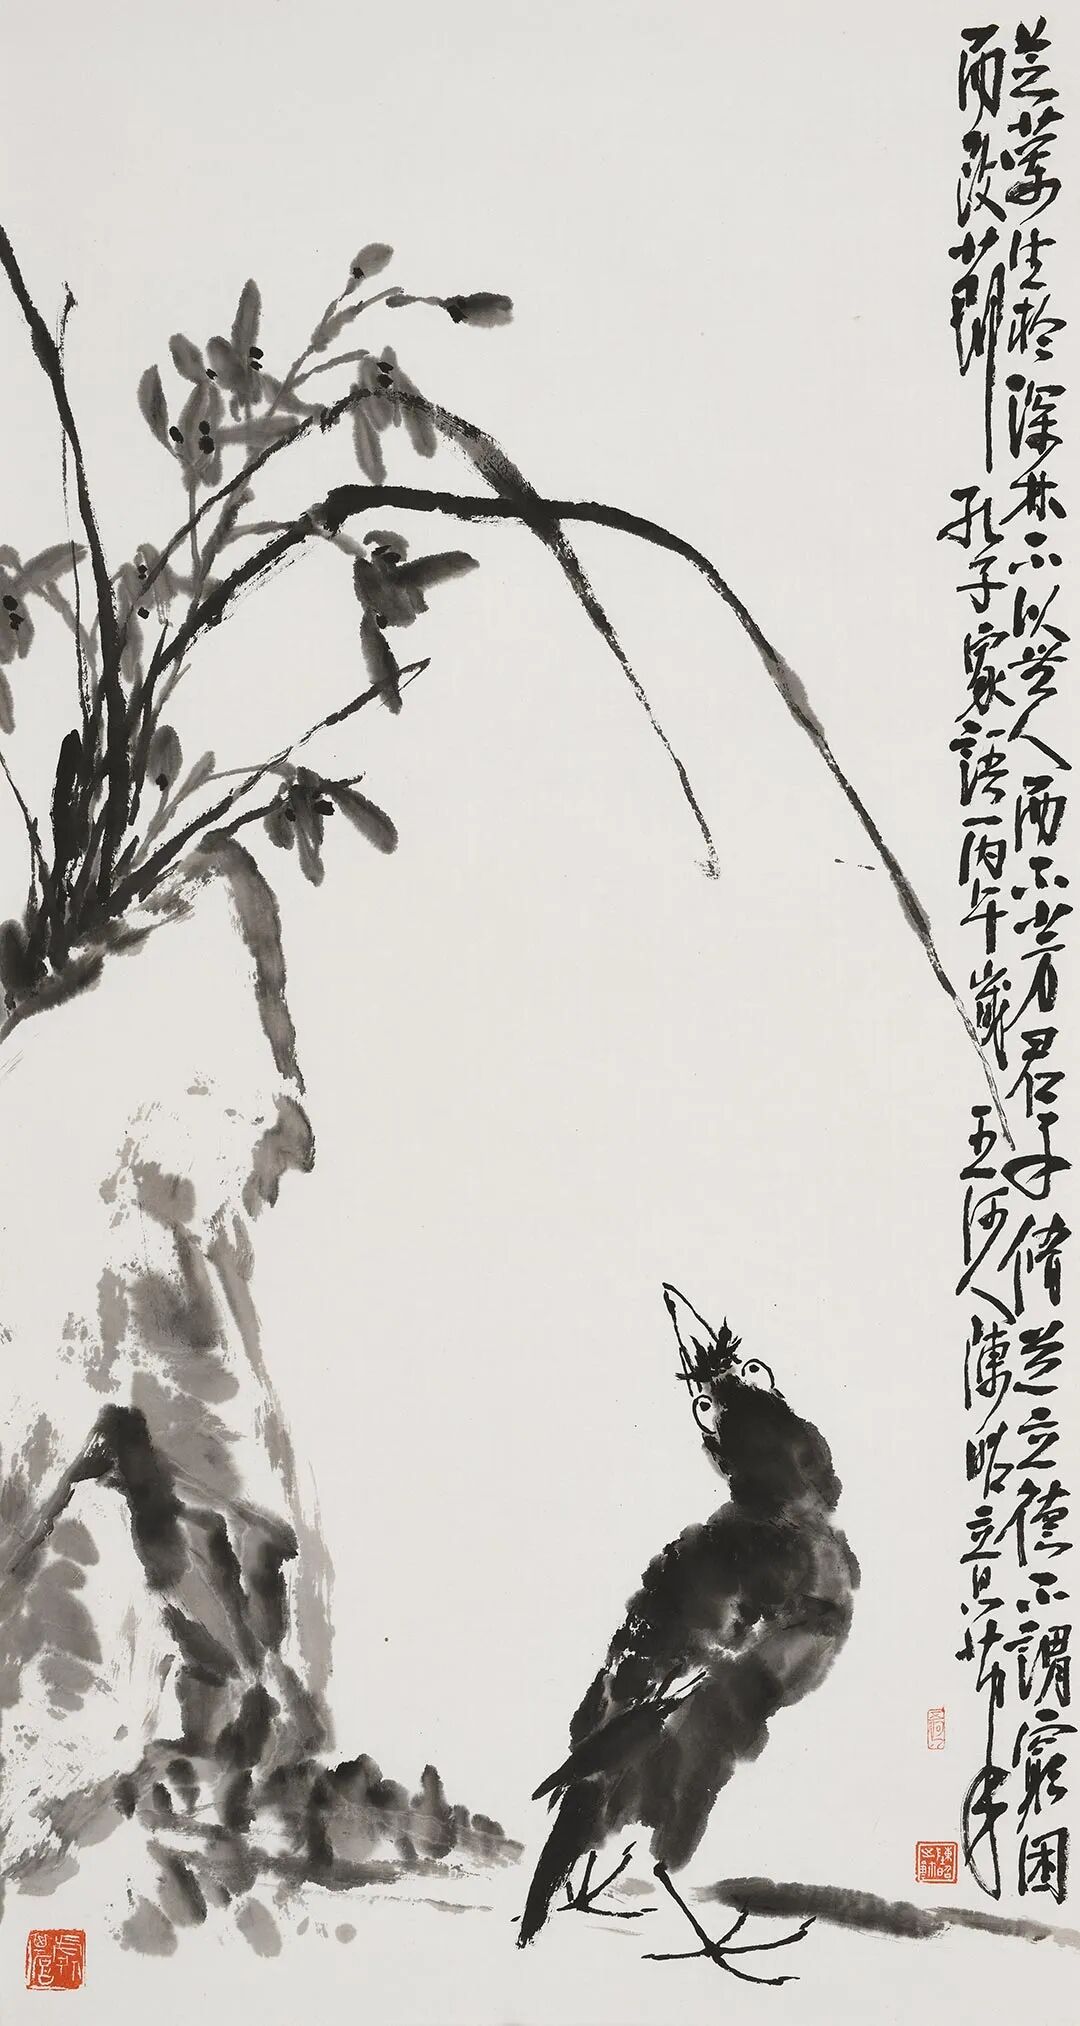 芝蘭生於深林不以無人而不芳君子脩道立德不謂窮困
而改節 孔子家語 丙午歲 五河人陳昭